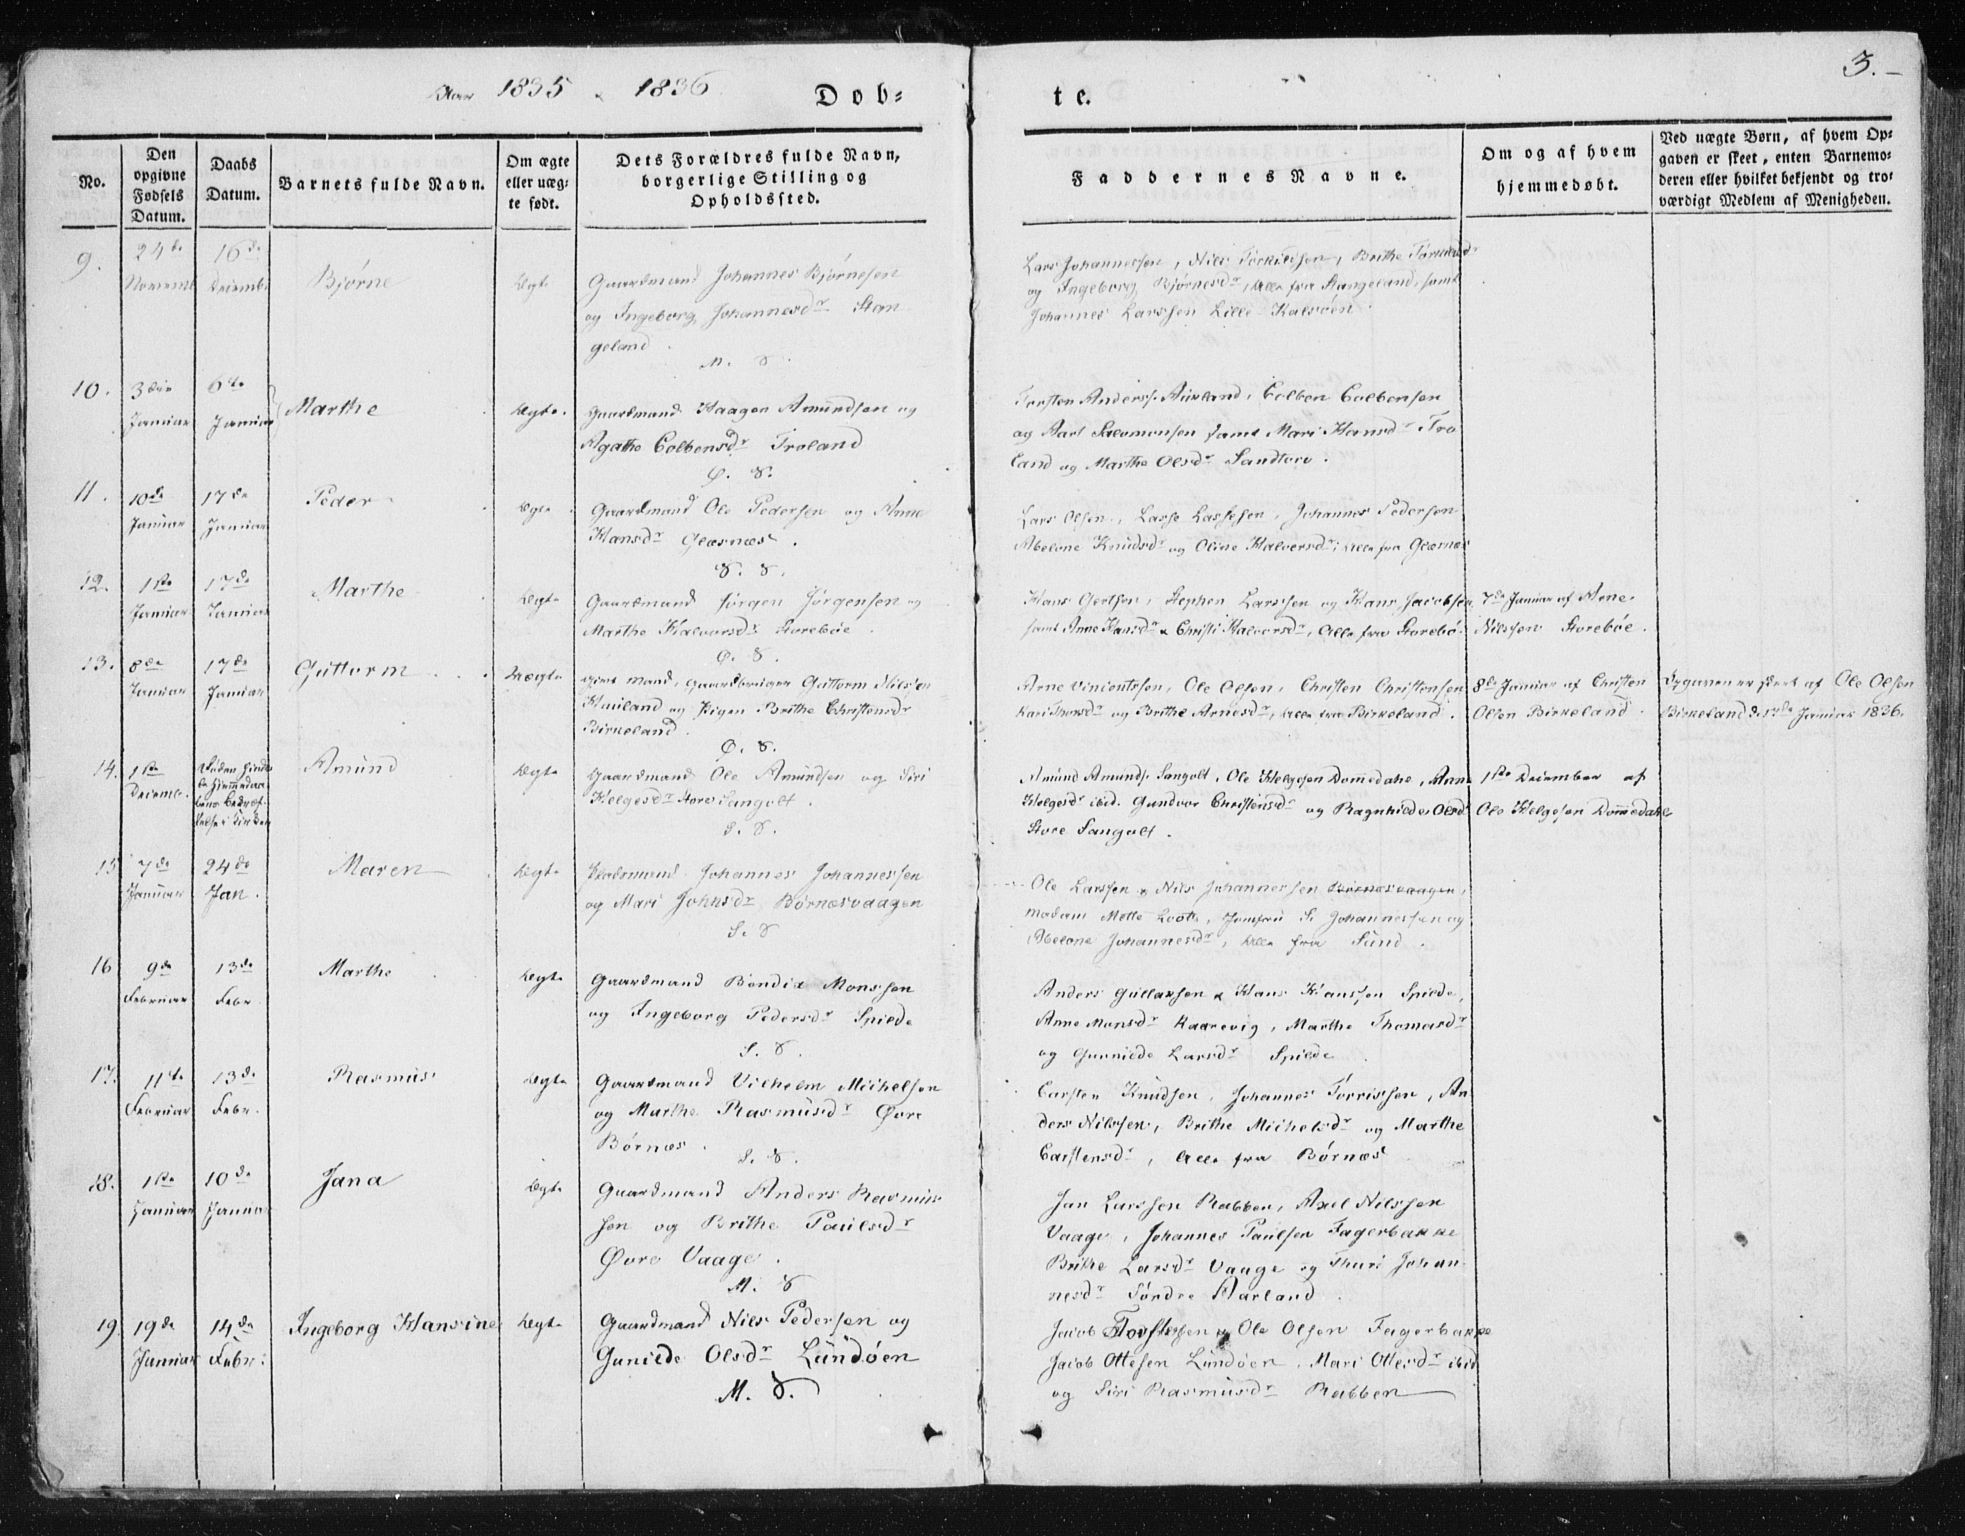 3.-
Aar 1835 & 1836
Dob=
te.
No.
Den
opgivne
Fødsels
Datum.
Daabs
Datum.
Barnets fulde Navn.
Om ægte
eller uæg=
te født.
Dets Forældres fulde Navn,
borgerlige Stilling og
Opholdssted.
Faddernes Navne.
Om og af hvem
hjemmedøbt.
Ved uægte Børn, af hvem Op=
gaven er skeet, enten Barnemo=
deren eller hvilket bekjendt og tro=
værdigt Medlem af Menigheden.
9.
24de
Novemb
16de
Decemb.
Bjørne
Ægte
Gaardmand Johannes Bjørnesen
og Ingeborg Johannesdr Stan
geland.
M. S.
Lars Johannessen, Nils Torkildsen, Brithe Torkildsdr
og Ingeborg Bjørnesdr, Alle fra Stangeland, samt
Johannes Larssen Lille Kalsøen.
10.
3die
Januar
6te
Januar
Marthe
Ægte.
Gaardmand Haagen Amundsen og
Agathe Colbensdr Troland
Ø. S.
Torsten Anderss. Auvland, Colben Colbensen
og Aart Salomonsen samt Mari Hansdr Tro
land og Marthe Olsdr Sandtorv.
11.
10de
Januar
17de
Januar
Peder
Ægte.
Gaardmand Ole Pedersen og Anne
Hansdr Glæsnæs.
S. S.
Lars Olsen, Lasse Lassesen, Johannes Pedersen
Abelone Knudsdr og Oline Halversdr; Alle fra Glæsnæs
12.
1ste
Januar
17de
Januar
Marthe
Ægte
Gaardmand Jørgen Jørgensen og
Marthe Halvorsdr Storebøe.
Ø. S.
Hans Gertsen, Stephen Larssen og Hans Jacobsen
samt Anne Hansdr & Christi Halvorsdr, Alle fra Storebø.
7de Januar af Arne
Nilssen Storebøe.
13.
8de
Januar
17de
Januar
Guttorm
Uægte
givt Mand, Gaardbruger Guttorm Nilsen
Hauland og Pigen Brithe Christensdr
Birkeland.
Ø. S.
Arne Vincentssen, Ole Olsen, Christen Christensen
Kari Thorsdr og Brithe Arnesdr, Alle fra Birkeland.
8de Januar af Christen
Olsen Birkeland.
Opgaven er skeet af Ole Olsen
Birkeland d. 17de Januar 1836.
14.
1ste
Decemb.
Amund
Ægte
Gaardmand Ole Amundsen og Siri
Helgesdr Store Sangolt.
S. S.
Amund Amunds. Sangolt, Ole Helgesen Domedahl, Anne
Helgesdr ibid. Gundvor Christensdr og Ragnhilde Olsdr
Store Sangolt.
1ste December af
Ole Helgesen Domedahl
15
7de
Januar
24de
Jan.
Maren
Ægte
Johannes Johannessen
og Mari Johnsdr Børnæsvaagen
S. S
Ole Larssen & Nils Johannessen Børnæsvaagen,
Madam Mette Loott, Jomfru S. Johannessen og
Abelone Johannesdr, Alle fra Sund.
16
9de
Februar
13de
Febr.
Marthe
Ægte
Gaardmand Bendix Monssen
og Ingeborg Pedersdr Spilde
S. S.
Anders Gullaksen & Hans Hanssen Spilde,
Anne Monsdr Kaarevig, Marthe Thomasdr
og Gunnilde Larsdr Spilde.
17.
11te
Februar
13de
Febr.
Rasmus
Ægte
Gaardmand Vilhelm Michelsen
og Marthe Rasmusdr Øvre
Børnæs.
S. S.
Carsten Knudsen, Johannes Torrissen, An
ders Nilssen, Brithe Michelsdr og Marthe
Carstensdr, Alle fra Børnæs
18.
1ste
Januar
10de
Januar
Jana
Ægte
Gaardmand Anders Rasmus
sen og Brithe Paulsdr
Øvre Vaage.
M. S
Jan Larssen Rabben, Axel Nilssen
Vaage, Johannes Paulsen Fagerbakke
Brithe Larsdr Vaage og Thuri Johan
nesdr Søndre Aarland.
19
19de
Januar
14de
Febr.
Ingeborg Hansine
Ægte
Gaardmand Nils Pedersen og
Gunilde Olsdr Lundøen
M. S.
Jacob Torstensen & Ole Olsen Fagerbakke
Jacob Ottesen Lundøen, Mari Ottesdr ibid.
og Siri Rasmusdr Rabben